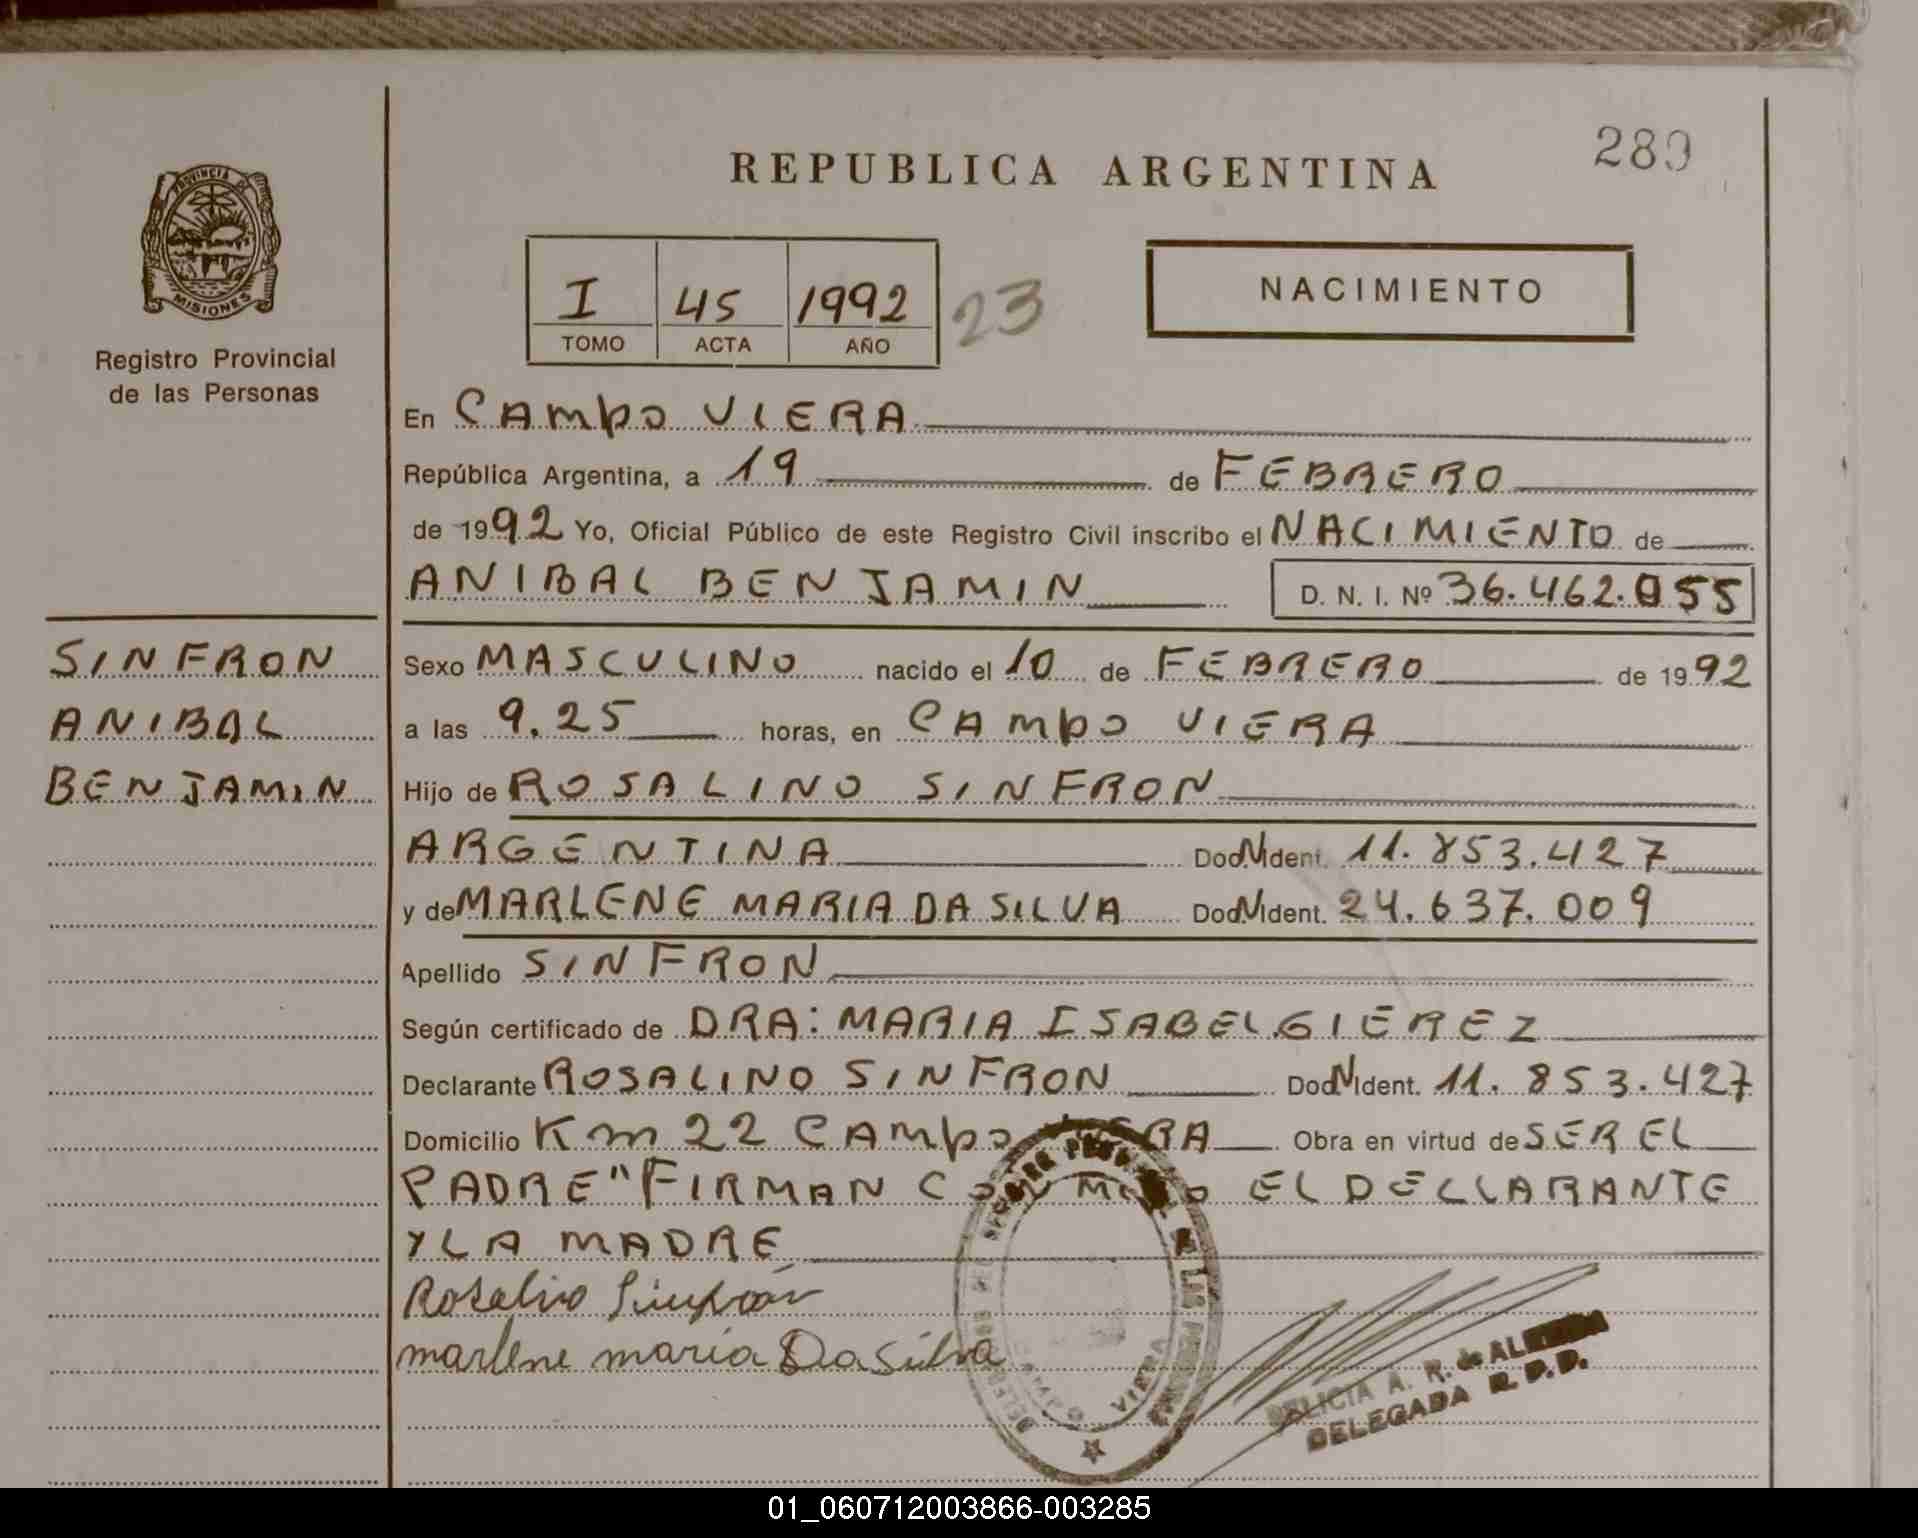 289
REPUBLICA ARGENTINA
PROVINCIA DE
MISIONES
Registro Provincial
de las Personas
I 45 1992 23
TOMO ACTA AÑO
NACIMIENTO
En CAMPO VIERA
República Argentina, a 19 de FEBRERO
de 1992 Yo, Oficial Público de este Registro Civil inscribo el NACIMIENTO de
ANIBAL BENJAMIN D. N. I. Nº 36.462.055
SINFRON
ANIBAL
BENJAMIN
Sexo MASCULINO nacido el 10 de FEBRERO de 1992
a las 9.25 horas, en CAMPO VIERA
Hijo de ROSALINO SINFRON
ARGENTINA Doc. N Ident. 11.853.427
y de MARLENE MARIA DA SILVA Doc. N Ident. 24.637.009
Apellido SINFRON
Según certificado de DRA: MARIA ISABEL GIEREZ
Declarante ROSALINO SINFRON Doc. N Ident. 11.853.427
Domicilio Km 22 CAMPO VIERA Obra en virtud de SER EL
PADRE" FIRMAN CONMIGO EL DECLARANTE
Y LA MADRE
Rosalino Sinfron
marlene maria Da Silva
VIERA
A. R. de
DELEGADA R. P. P.
01_060712003866-003285